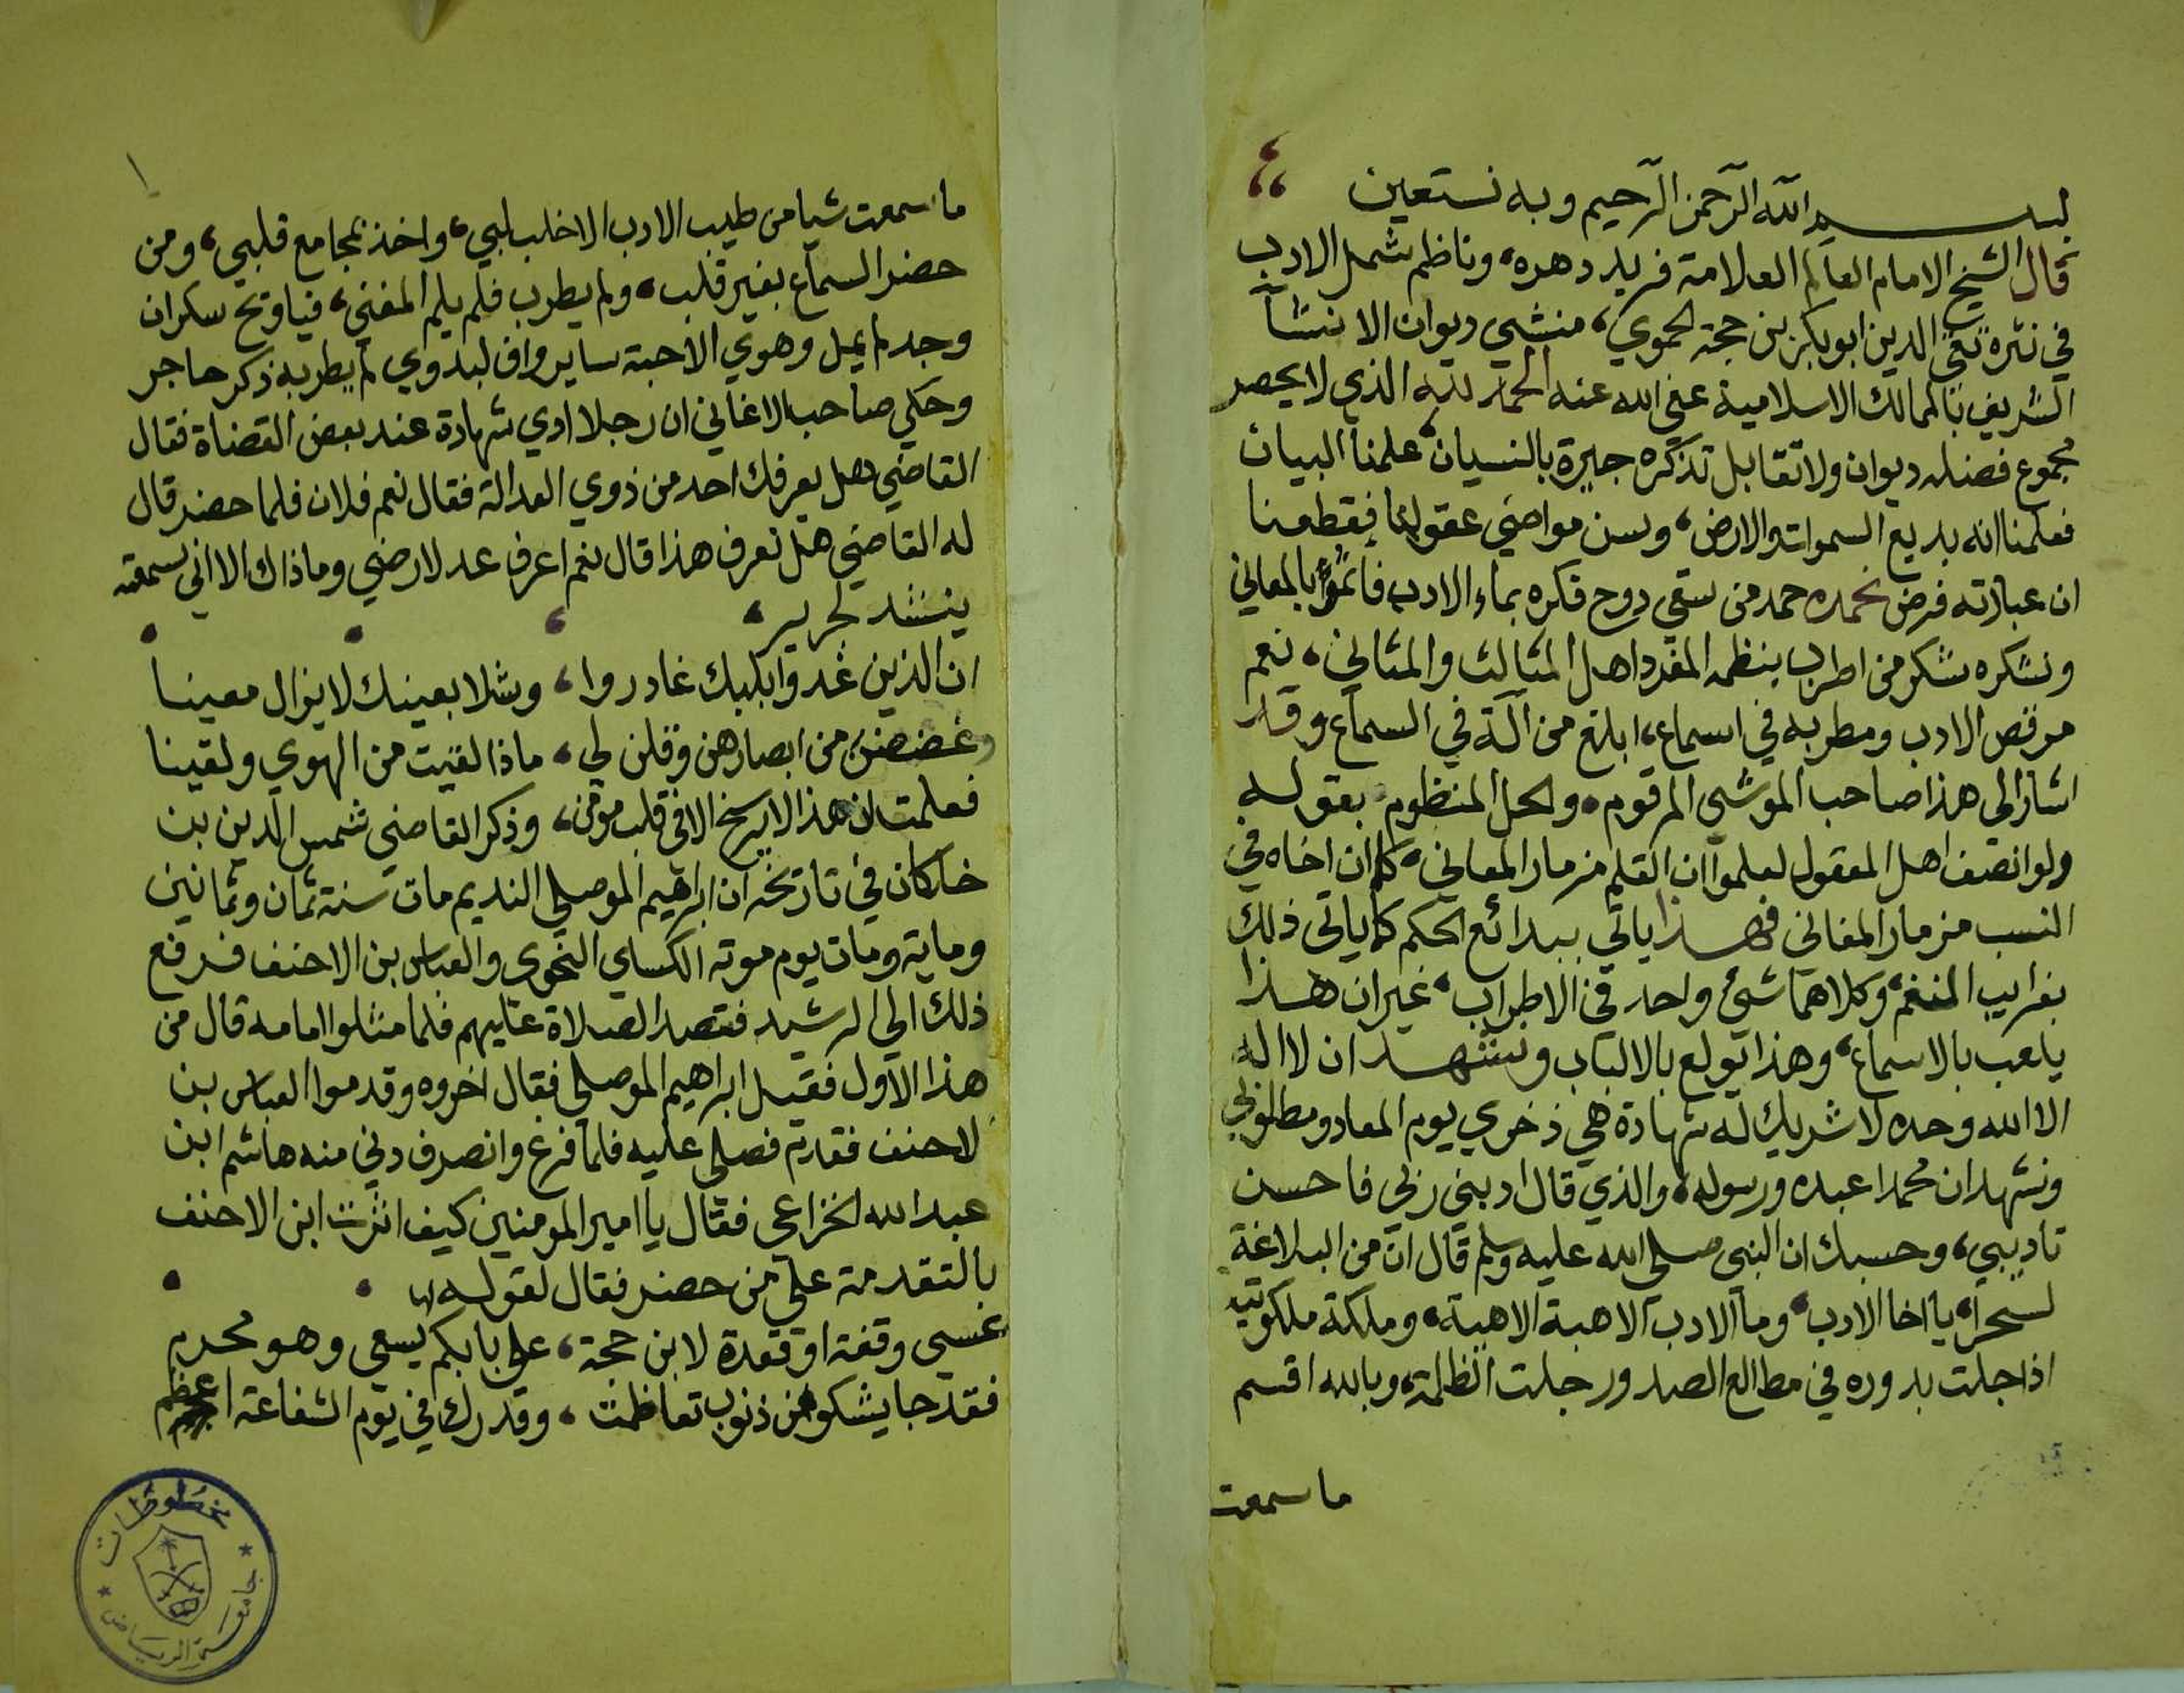 بسم الله الرحمن الرحيم وبه نستعين
قال الشيخ الامام العالم العلامة فريد دهره، وناظم شمل الادب
في نثره تقي الدين ابو بكر بن حجة الحموي، منشي ديوان الانشآ
الشريف بالممالك الاسلامية عفي الله عنه الحمد لله الذي لا يحصر
مجموع فضله ديوان ولا تقابل تذكره جيرة بالنسيان، علمنا البيان
فعلمنا انه بديع السموات والارض، وسن مواضي عقولنا فقطعنا
ان عبادته فرض نحمده حمد من سقي دوح فكره بماء الادب فاثمر بالمعاني
ونشكره شكر من اطرب بنظمه المفرد اهل المثالث والمثاني، نعم
مرقص الادب ومطربه في اسماع، ابلغ من آلة في السماع وقد
اشار الي هذا صاحب الموشي المرقوم، والحل المنظوم بقوله
ولو انصف اهل المعقول لعلموا ان القلم مزمار المعاني، كما ان اخاه في
النسب مزمار المغاني فهذا ياتي ببدائع الحكم كما ياتي ذلك
بغرايب النغم، وكلاهما شئ واحد في الاطراب، غير ان هذا
يلعب بالاسماع، وهذا يولع بالالباب ونشهد ان لا اله
الا الله وحده لا شريك له شهادة هي ذخري يوم المعاد ومطلوبي
ونشهد ان محمدا عبده ورسوله، والذي قال ادبني ربي فاحسن
تاديبي، وحسبك ان النبي صلي الله عليه وسلم قال ان من البلاغة
لسحرا، يا اخا الادب، وما الادب الا هبة الاهية، وملكة ملكوتية
اذا جلت بدوره في مطالع الصدور جلت الظلمة، وبالله اقسم
ما سمعت
ما سمعت شيا من طيب الادب الا خلب لبي، واخذ بمجامع قلبي، ومن
حضر السماع بغير قلب، ولم يطرب فلم يلم المغني، فياويح سكران
وجد لم يمل وهوي الاحبة ساير واف لبدوي لم يطربه ذكر حاجر
وحكي صاحب الاغاني ان رجلا ادي شهادة عند بعض القضاة فقال
القاضي هل يعرفك احد من ذوي العدالة فقال نعم فلان فلما حضر قال
له القاضي هل تعرف هذا قال نعم اعرف عدلا رضي وما ذاك الا اني سمعته
ينشد لجرير،
ان الذين غدوا بلبك غادروا، وشلا بعينك لا يزال معينا
وغضضن من ابصارهن وقلن لي، ماذا لقيت من الهوي ولقينا
فعلمت ان هذا لا يرسخ الا في قلب مؤمن، وذكر القاضي شمس الدين بن
خلكان في تاريخه ان ابراهيم الموصلي النديم مات سنة ثمان وثمانين
وماية ومات يوم موته الكساي النحوي والعباس بن الاحنف فرفع
ذلك الي الرشيد فقصد الصلاة عليهم فلما مثلوا امامه قال من
هذا الاول فقيل ابراهيم الموصلي فقال اخروه وقدموا العباس بن
لاحنف فقدم فصلي عليه فلما فرغ وانصرف دني منه هاشم ابن
عبد الله الخزاعي فقال يا امير المومنين كيف اثرت ابن الاحنف
بالتقدمة علي من حضر فقال لقوله
عسي وقفة او قعدة لابن حجة، علي بابكم يسعي وهو محرم
فقد جا يشكو من ذنوب تعاظمت، وقدرك في يوم الشفاعة اعظم
مخطوطات
جامعة الرياض